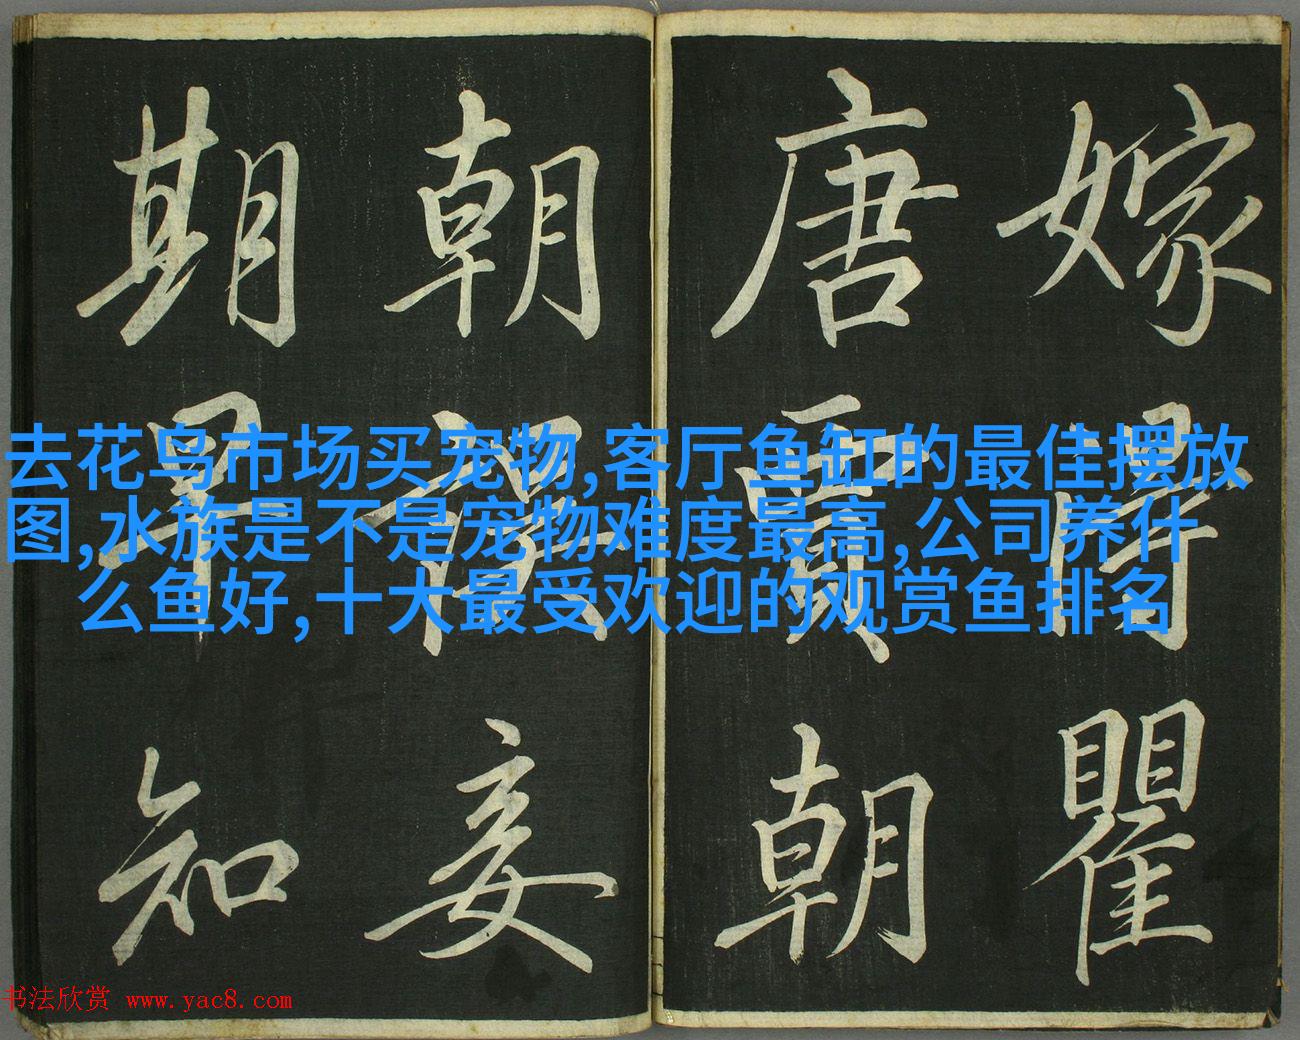 嫁得瞿
唐賈朝
朝誤妾
期早知
去花鸟市场买宠物,客厅鱼缸的最佳摆放
图,水族是不是宠物难度最高,公司养什
么鱼好,十大最受欢迎的观赏鱼排名
书法欣赏 www.yac8.com